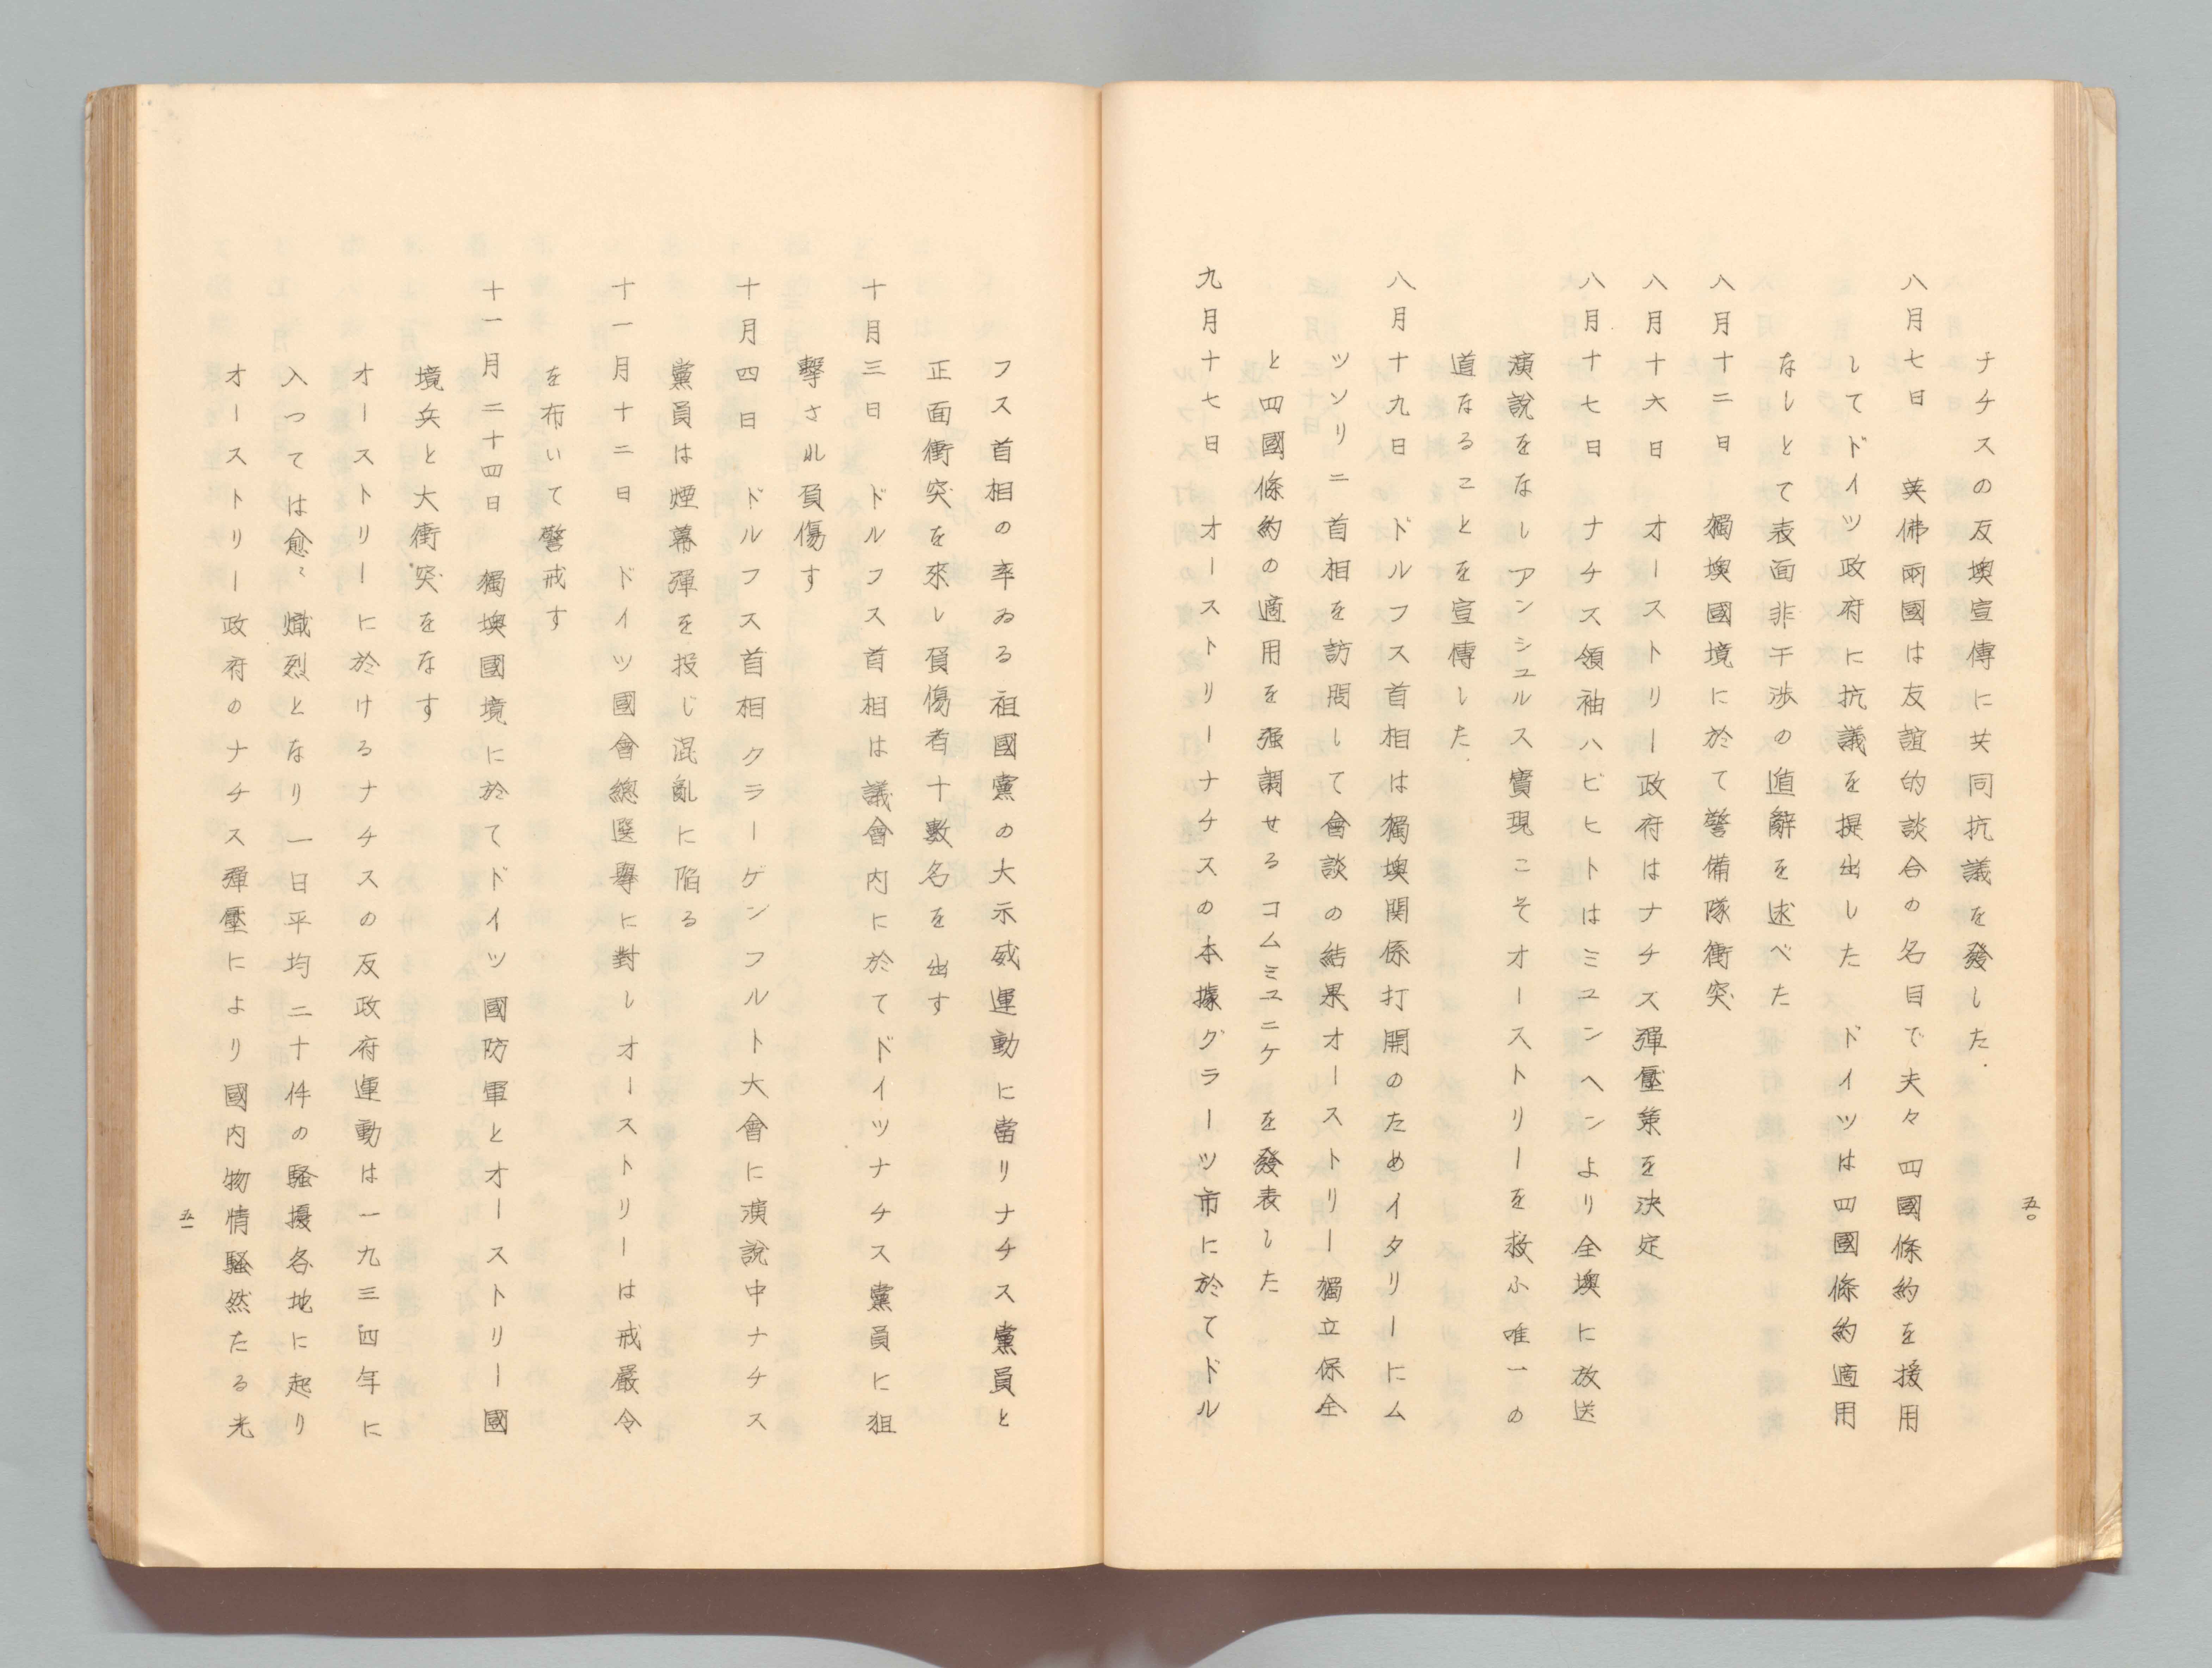 ナチスの反墺宣傳に共同抗議を發した.
八月七日　英佛兩國は友誼的談合の名目で夫々四國條約を援用
してドイツ政府に抗議を提出した　ドイツは四國條約適用
なしとて表面非干渉の遁辭を述べた
八月十二日　獨墺國境に於て警備隊衝突
八月十六日　オーストリー政府はナチス彈壓策を決定
八月十七日　ナチス領袖ハビヒトはミユンヘンより全墺に放送
演說をなしアンシユルス實現こそオーストリーを救ふ唯一の
道なることを宣傳した.
八月十九日　ドルフス首相は獨墺関係打開のためイタリーにム
ツソリニ首相を訪問して會談の結果オーストリー獨立保全
と四國條約の適用を强調せるコムミユニケ　を發表した
九月十七日　オーストリーナチスの本據グラーツ市に於てドル
五〇
フス首相の率ゐる祖國黨の大示威運動に當リナチス黨員と
正面衝突を來し負傷者十數名を出す
十月三日　ドルフス首相は議會内に於てドイツナチス黨員に狙
擊され負傷す
十月四日　ドルフス首相クラーゲンフルト大會に演說中ナチス
黨員は煙幕彈を投じ混亂に陷る
十一月十二日　ドイツ國會總選擧に對しオーストリーは戒嚴令
を布いて警戒す
十一月二十四日　獨墺國境に於てドイツ國防軍とオーストリー國
境兵と大衝突をなす
オーストリーに於けるナチスの反政府運動は一九三四年に
入つては愈〻熾烈となり一日平均二十件の騷擾各地に起り
オーストリー政府のナチス彈壓により國内物情騷然たる光
五一